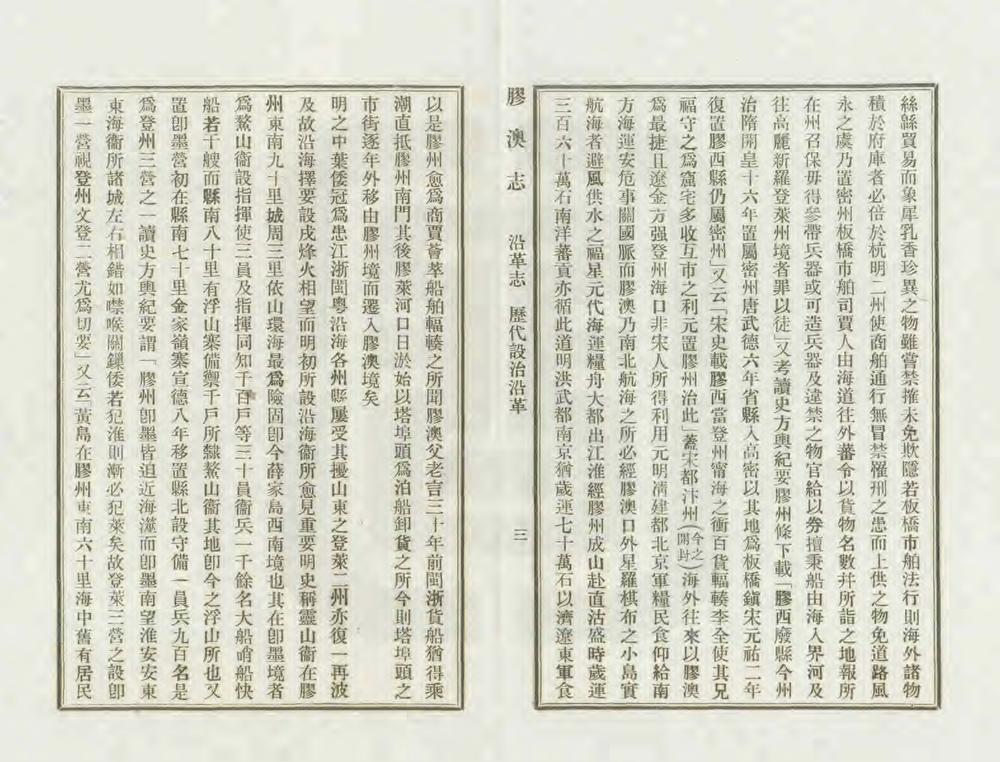 絲緜貿易而象犀乳香珍異之物雖嘗禁搉未免欺隱若板橋市舶法行則海外諸物
積於府庫者必倍於杭明二州使商舶通行無冒禁罹刑之患而上供之物免道路風
永之虞乃置密州板橋市舶司賈人由海道往外蕃令以貨物名數幷所詣之地報所
在州召保毋得參帶兵器或可造兵器及違禁之物官給以券擅乘船由海入界河及
往高麗新羅登萊州境者罪以徒」又考讀史方輿紀要膠州條下載「膠西廢縣今州
治隋開皇十六年置屬密州唐武德六年省縣入高密以其地爲板橋鎭宋元祐二年
復置膠西縣仍屬密州」又云「宋史載膠西當登州甯海之衝百貨輻輳李全使其兄
福守之爲窟宅多收互市之利元置膠州治此」蓋宋都汴州(今之開封)海外往來以膠澳
爲最捷且遼金方强登州海口非宋人所得利用元明淸建都北京軍糧民食仰給南
方海運安危事關國脈而膠澳乃南北航海之所必經膠澳口外星羅棋布之小島實
航海者避風供水之福星元代海運糧舟大都出江淮經膠州成山赴直沽盛時歲運
三百六十萬石南洋蕃貢亦循此道明洪武都南京猶歲運七十萬石以濟遼東軍食
膠澳志 沿革志 歷代設治沿革 三
以是膠州愈爲商賈薈萃船舶輻輳之所聞膠澳父老言三十年前閩浙貨船猶得乘
潮直抵膠州南門其後膠萊河口日淤始以塔埠頭爲泊船卸貨之所今則塔埠頭之
市街逐年外移由膠州境而遷入膠澳境矣
明之中葉倭冦爲患江浙閩粤沿海各州縣屢受其擾山東之登萊二州亦復一再波
及故沿海擇要設戍烽火相望而明初所設沿海衞所愈見重要明史稱靈山衞在膠
州東南九十里城周三里依山環海最爲險固卽今薛家島西南境也其在卽墨境者
爲鰲山衞設指揮使三員及指揮同知千百戶等三十員衞兵一千餘名大船哨船快
船若干艘而縣南八十里有浮山寨備禦千戶所隸鰲山衞其地卽今之浮山所也又
置卽墨營初在縣南七十里金家嶺寨宣德八年移置縣北設守備一員兵九百名是
爲登州三營之一讀史方輿紀要謂「膠州卽墨皆迫近海濰而卽墨南望淮安安東
東海衞所諸城左右相錯如噤喉關鏁倭若犯淮則漸必犯萊矣故登萊三營之設卽
墨一營視登州文登二營尤爲切要」又云「黃島在膠州東南六十里海中舊有居民